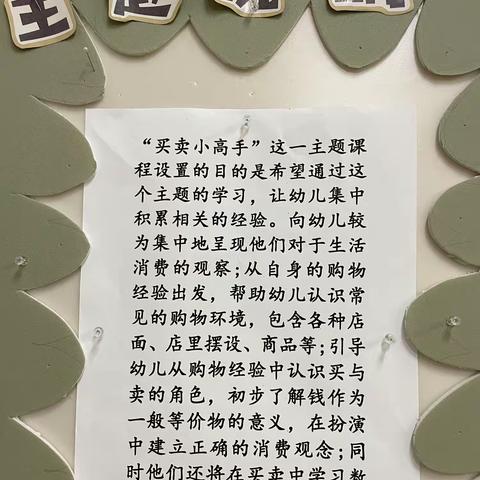 “买卖小高手”这一主题课
程设置的目的是希望通过这
个主题的学习，让幼儿集中
积累相关的经验。向幼儿较
为集中地呈现他们对于生活
消费的观察;从自身的购物
经验出发，帮助幼儿认识常
见的购物环境，包含各种店
面、店里摆设、商品等;引导
幼儿从购物经验中认识买与
卖的角色，初步了解钱作为
一般等价物的意义，在扮演
中建立正确的消费观念;同
时他们还将在买卖中学习数